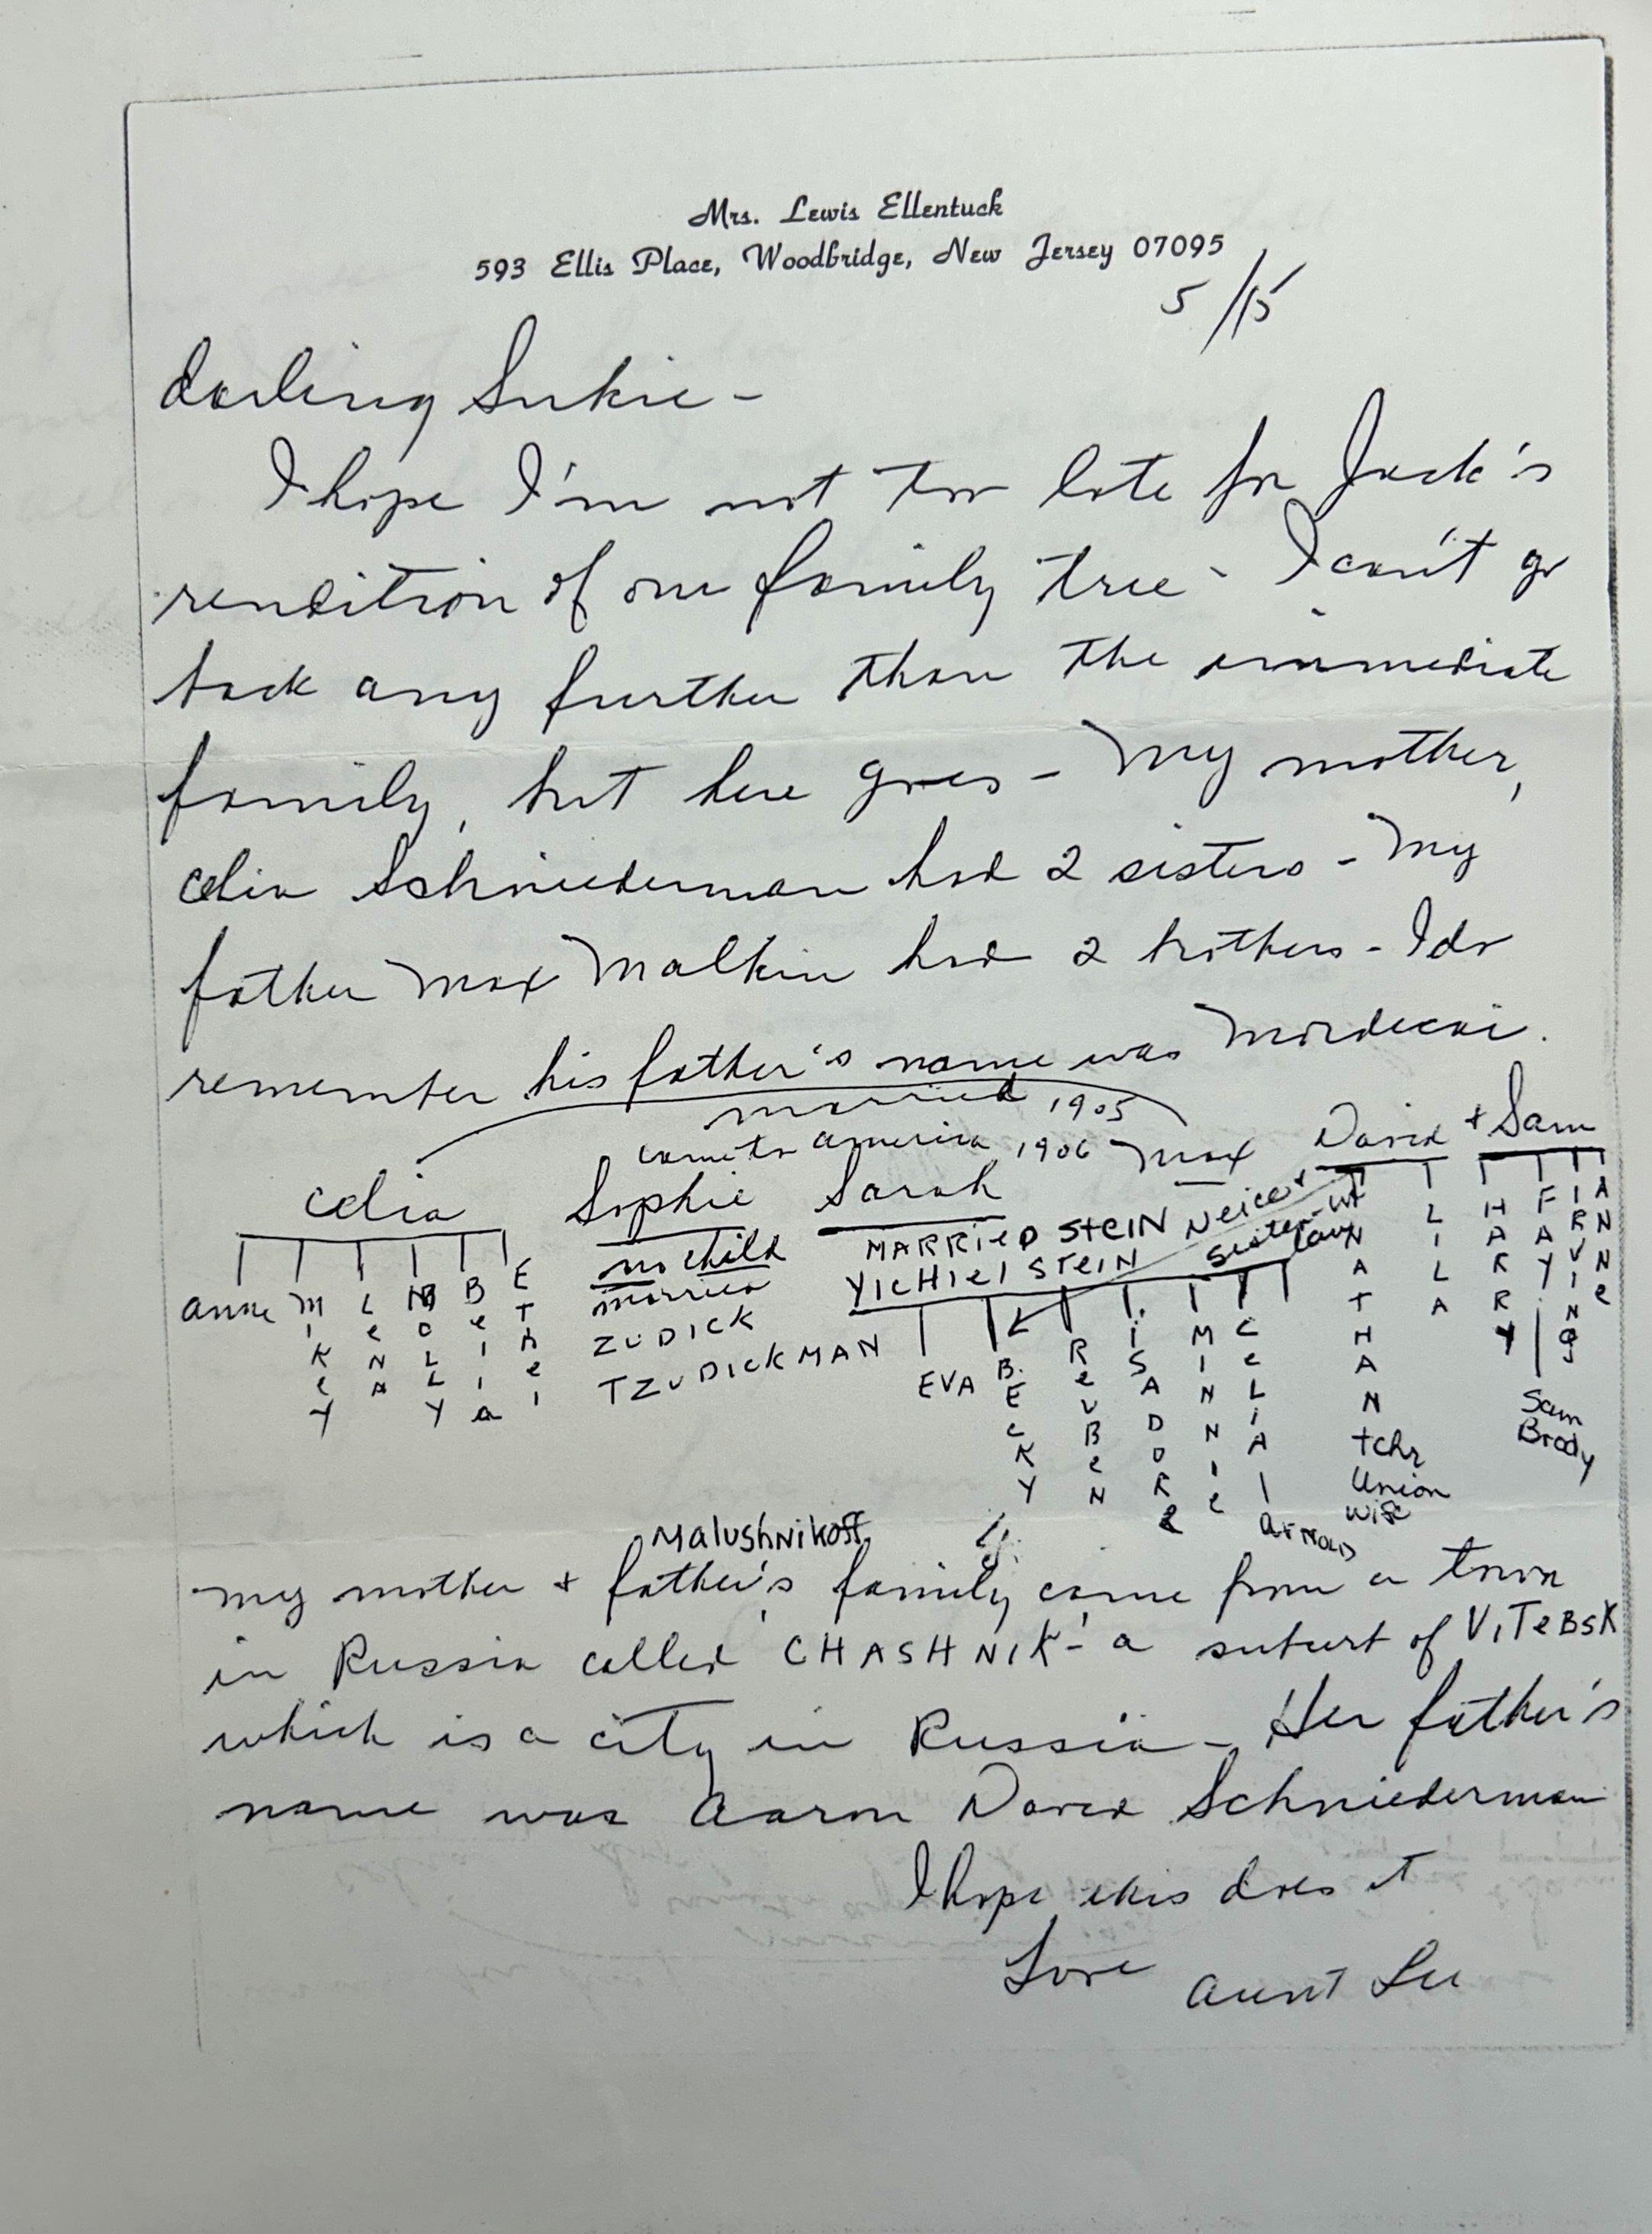 Mrs. Lewis Ellentuck
593 Ellis Place, Woodbridge, New Jersey 07095
5/15
darling Sukie -
I hope I'm not too late for Jack's
rendition of our family tree - I can't go
back any further than the immediate
family, but here goes - My mother,
Celia Schniederman had 2 sisters - My
father Max Malkin had 2 brothers - I do
remember his father's name was Mordecai.
married 1905
came to america 1906
Celia Sophie Sarah Max David + Sam
anne MIKeY LeNA MOLLY Beila EThel
no child
married
ZUDICK
TZUDICKMAN
MARRIeD STeIN
YICHIel STeIN
Neice +
Sister-in
law
EVA BEcKY ReUBeN iSADORe MINNIe CeLiA
arnold
NATHAN LILA HARRY FAY IRVINg ANNe
tchr
Union
wife
Sam
Brody
MalushNikoff
my mother + father's family came from a town
in Russia called CHASHNIK - a suburt of ViTeBsK
which is a city in Russia - Her father's
name was Aaron David Schniederman
I hope this does it
Love Aunt Lee